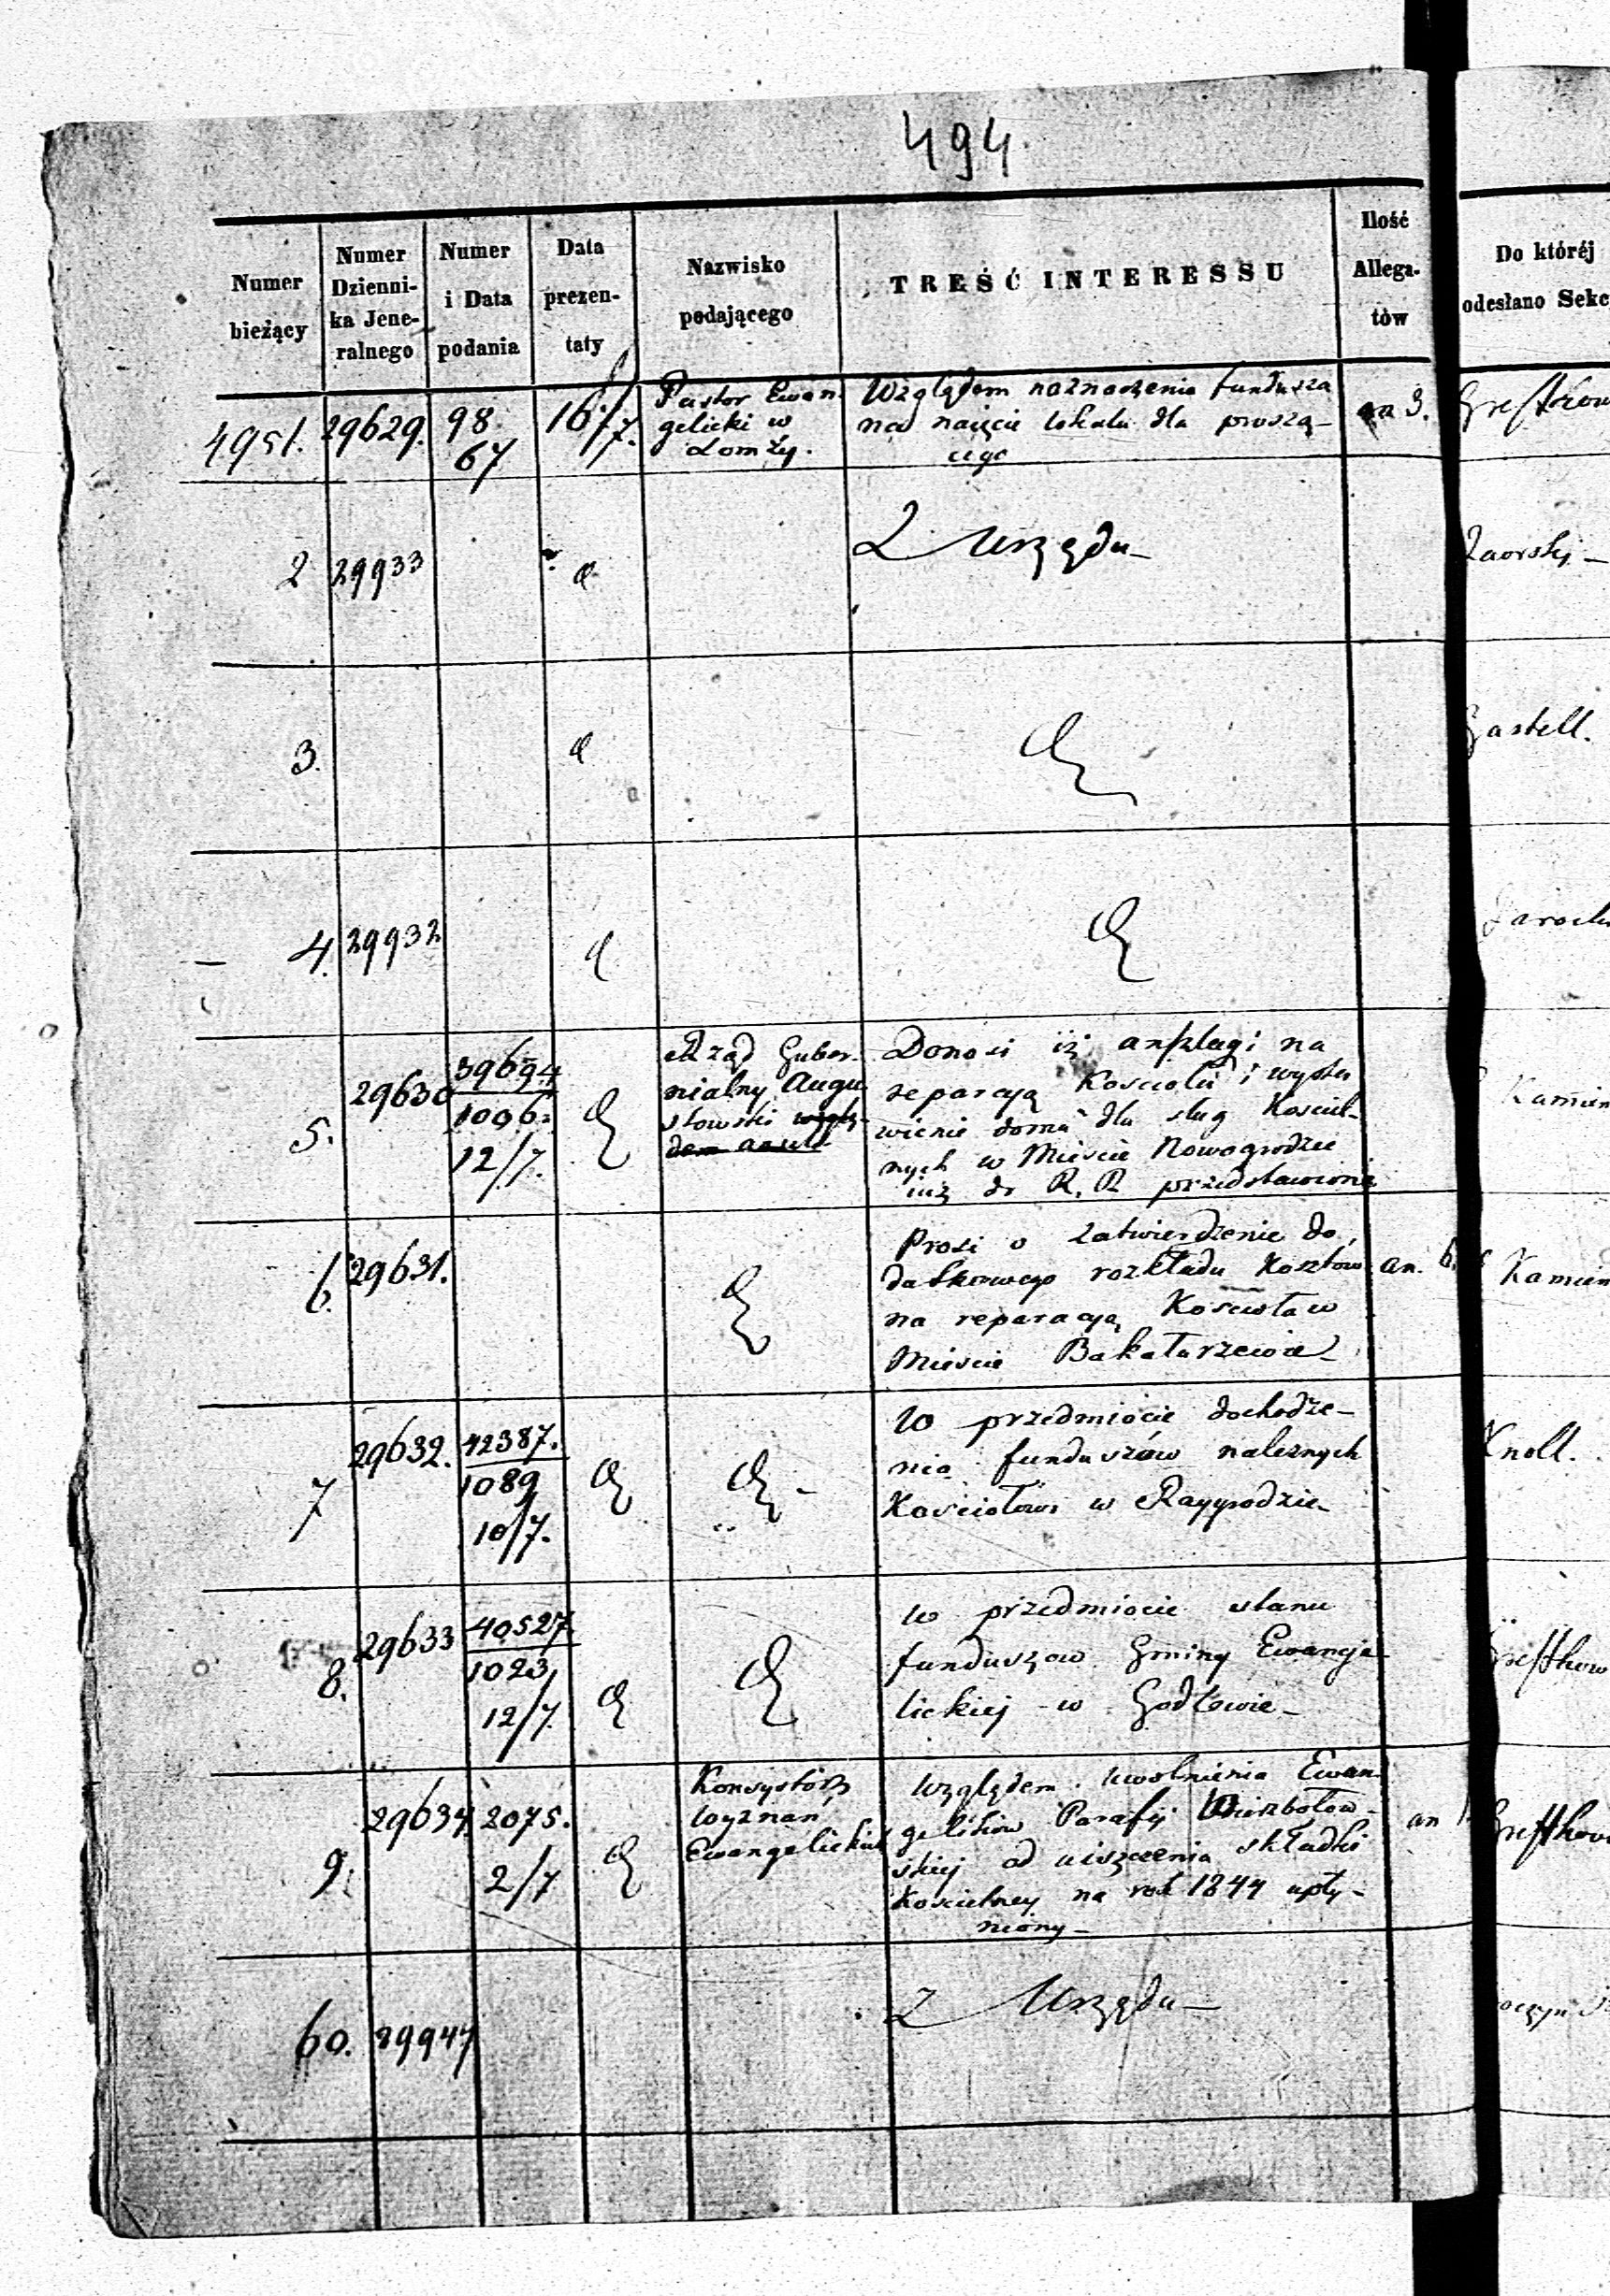 494.
Numer bieżący
Numer Dzienni-ka Jene-ralnego
Numer i Data podania
Data prezen-taty
Nazwisko podającego
TREŚĆ INTERESSU
Ilość Allega-tów
Do któréj
odesłano Sekc
4951.
29629.
98.
67
16/7.
Pastor Ewan-
gelicki w
Łomży.
Względem naznaczenia funduszu
na najęcie lokalu dla proszą-
cego
an 3.
2
29933
Z Urzędu
Zaorski
3.
Gastell.
4.
29932
5.
29630
39694
1006.
12/7.
Rząd Guber-
nialny Augu
stowski
Donosi iż anszlagi na
reparacyą Kosciola i wysta
wienie domu dla sług Kosciel-
nych w Miescie Nowogrodzie
już do R. R. przedstawione
Kamien
6.
29631.
Prosi o zatwierdzenie do,
datkowego rozkładu Kosztow
na reparacyą Kosciola w
Miescie Bakałarzewie
an. 6.
Kamien
7
29632.
42387.
1089
10/7.
W przedmiocie dochodze-
nia funduszów należnych
Kościołowi w Raygrodzie
Knoll.
8.
29633
40527
1023
12/7.
W przedmiocie stanu
funduszow Gminy Ewangie
lickiej w Godlewie
9.
29634.
2075.
2/7
Konsystórz
Wyznań
Ewangelickich
Względem uwolnienia Ewan-
gelików Parafij Wierzbołow-
skiej od uiszczenia składki
Koscielney na rok 1844 upły-
niony
an
60.
29947
Z Urzędu